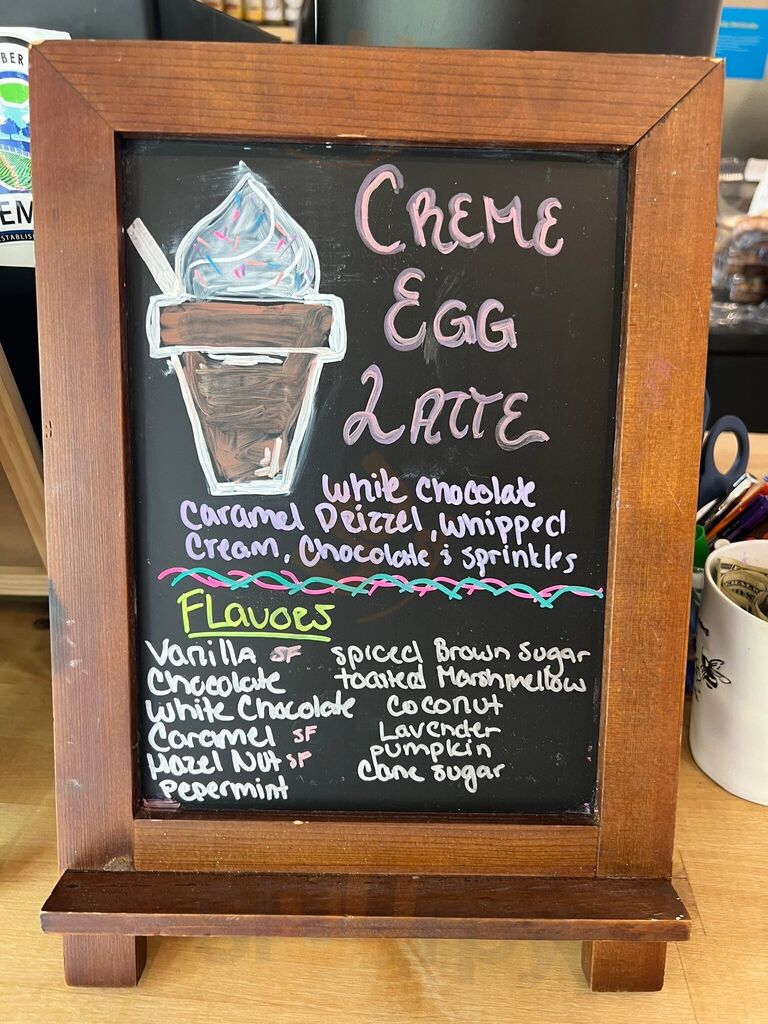 CREME
EGG
LATTE
White Chocolate
Caramel Drizzel, whipped
Cream, Chocolate & sprinkles
FLavors
Vanilla SF
Chocolate
White Chocolate
Caramel SF
Hazel Nut SF
pepermint
spiced Brown Sugar
toasted Marshmellow
coconut
Lavender
pumpkin
Cane sugar
BER
EM
ESTABLIS